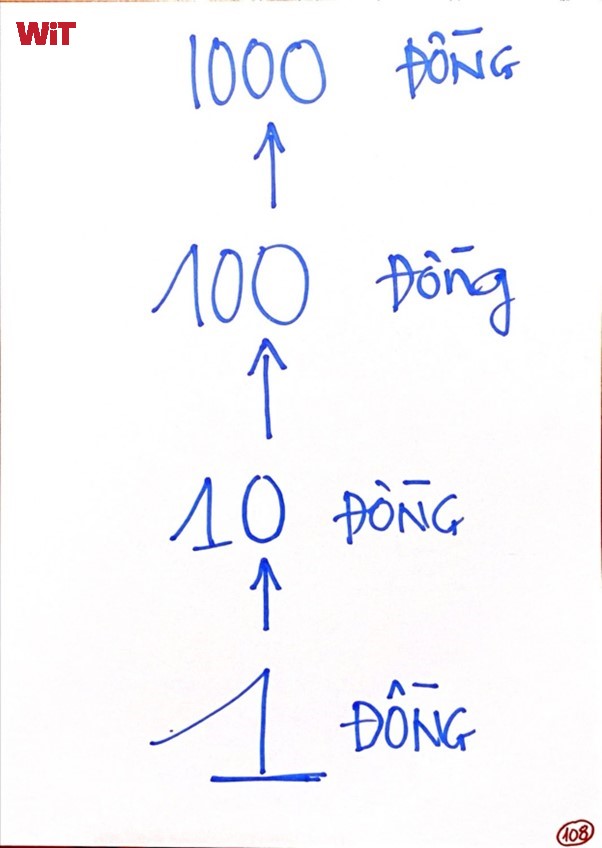 WiT
1000 ĐỒNG
100 Đồng
10 ĐỒNG
1 ĐỒNG
108